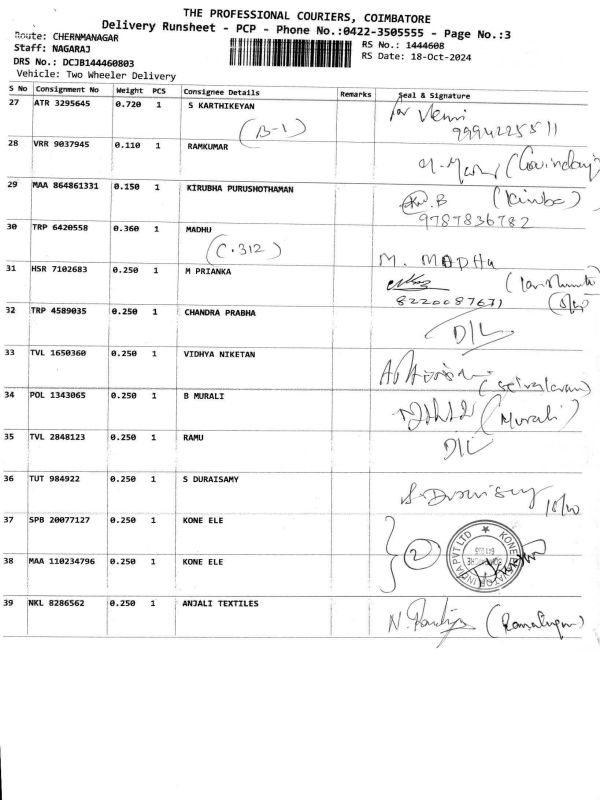 THE PROFESSIONAL COURIERS, COIMBATORE
Delivery Runsheet - PCP - Phone No.:0422-3505555 - Page No.:3
Route: CHERNMANAGAR
Staff: NAGARAJ
RS No.: 1444608
DRS No.: DCJB144460803
RS Date: 18-Oct-2024
Vehicle: Two Wheeler Delivery
S No Consignment No Weight PCS Consignee Details Remarks Seal & Signature
27 ATR 3295645 0.720 1 S KARTHIKEYAN for
(B-1) 9994225511
28 VRR 9037945 0.110 1 RAMKUMAR
29 MAA 864861331 0.150 1 KIRUBHA PURUSHOTHAMAN
9787836782
30 TRP 6420558 0.360 1 MADHU
(C.312) M. MADHU
31 HSR 7102683 0.250 1 M PRIANKA
8220087671
32 TRP 4589035 0.250 1 CHANDRA PRABHA
D/L
33 TVL 1650360 0.250 1 VIDHYA NIKETAN
34 POL 1343065 0.250 1 B MURALI (Murali)
35 TVL 2848123 0.250 1 RAMU D/L
36 TUT 984922 0.250 1 S DURAISAMY
18/10
37 SPB 20077127 0.250 1 KONE ELE
2
38 MAA 110234796 0.250 1 KONE ELE
39 NKL 8286562 0.250 1 ANJALI TEXTILES